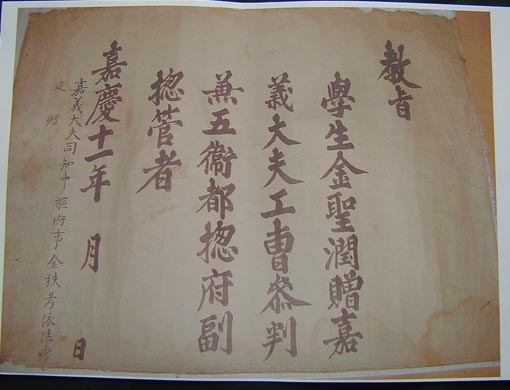 教旨
學生金聖潤贈嘉
義大夫工曹叅判
兼五衛都揔府副
揔管者
嘉慶十一年 月 日
嘉義大夫同知中樞府事金秩考依法典
追 贈